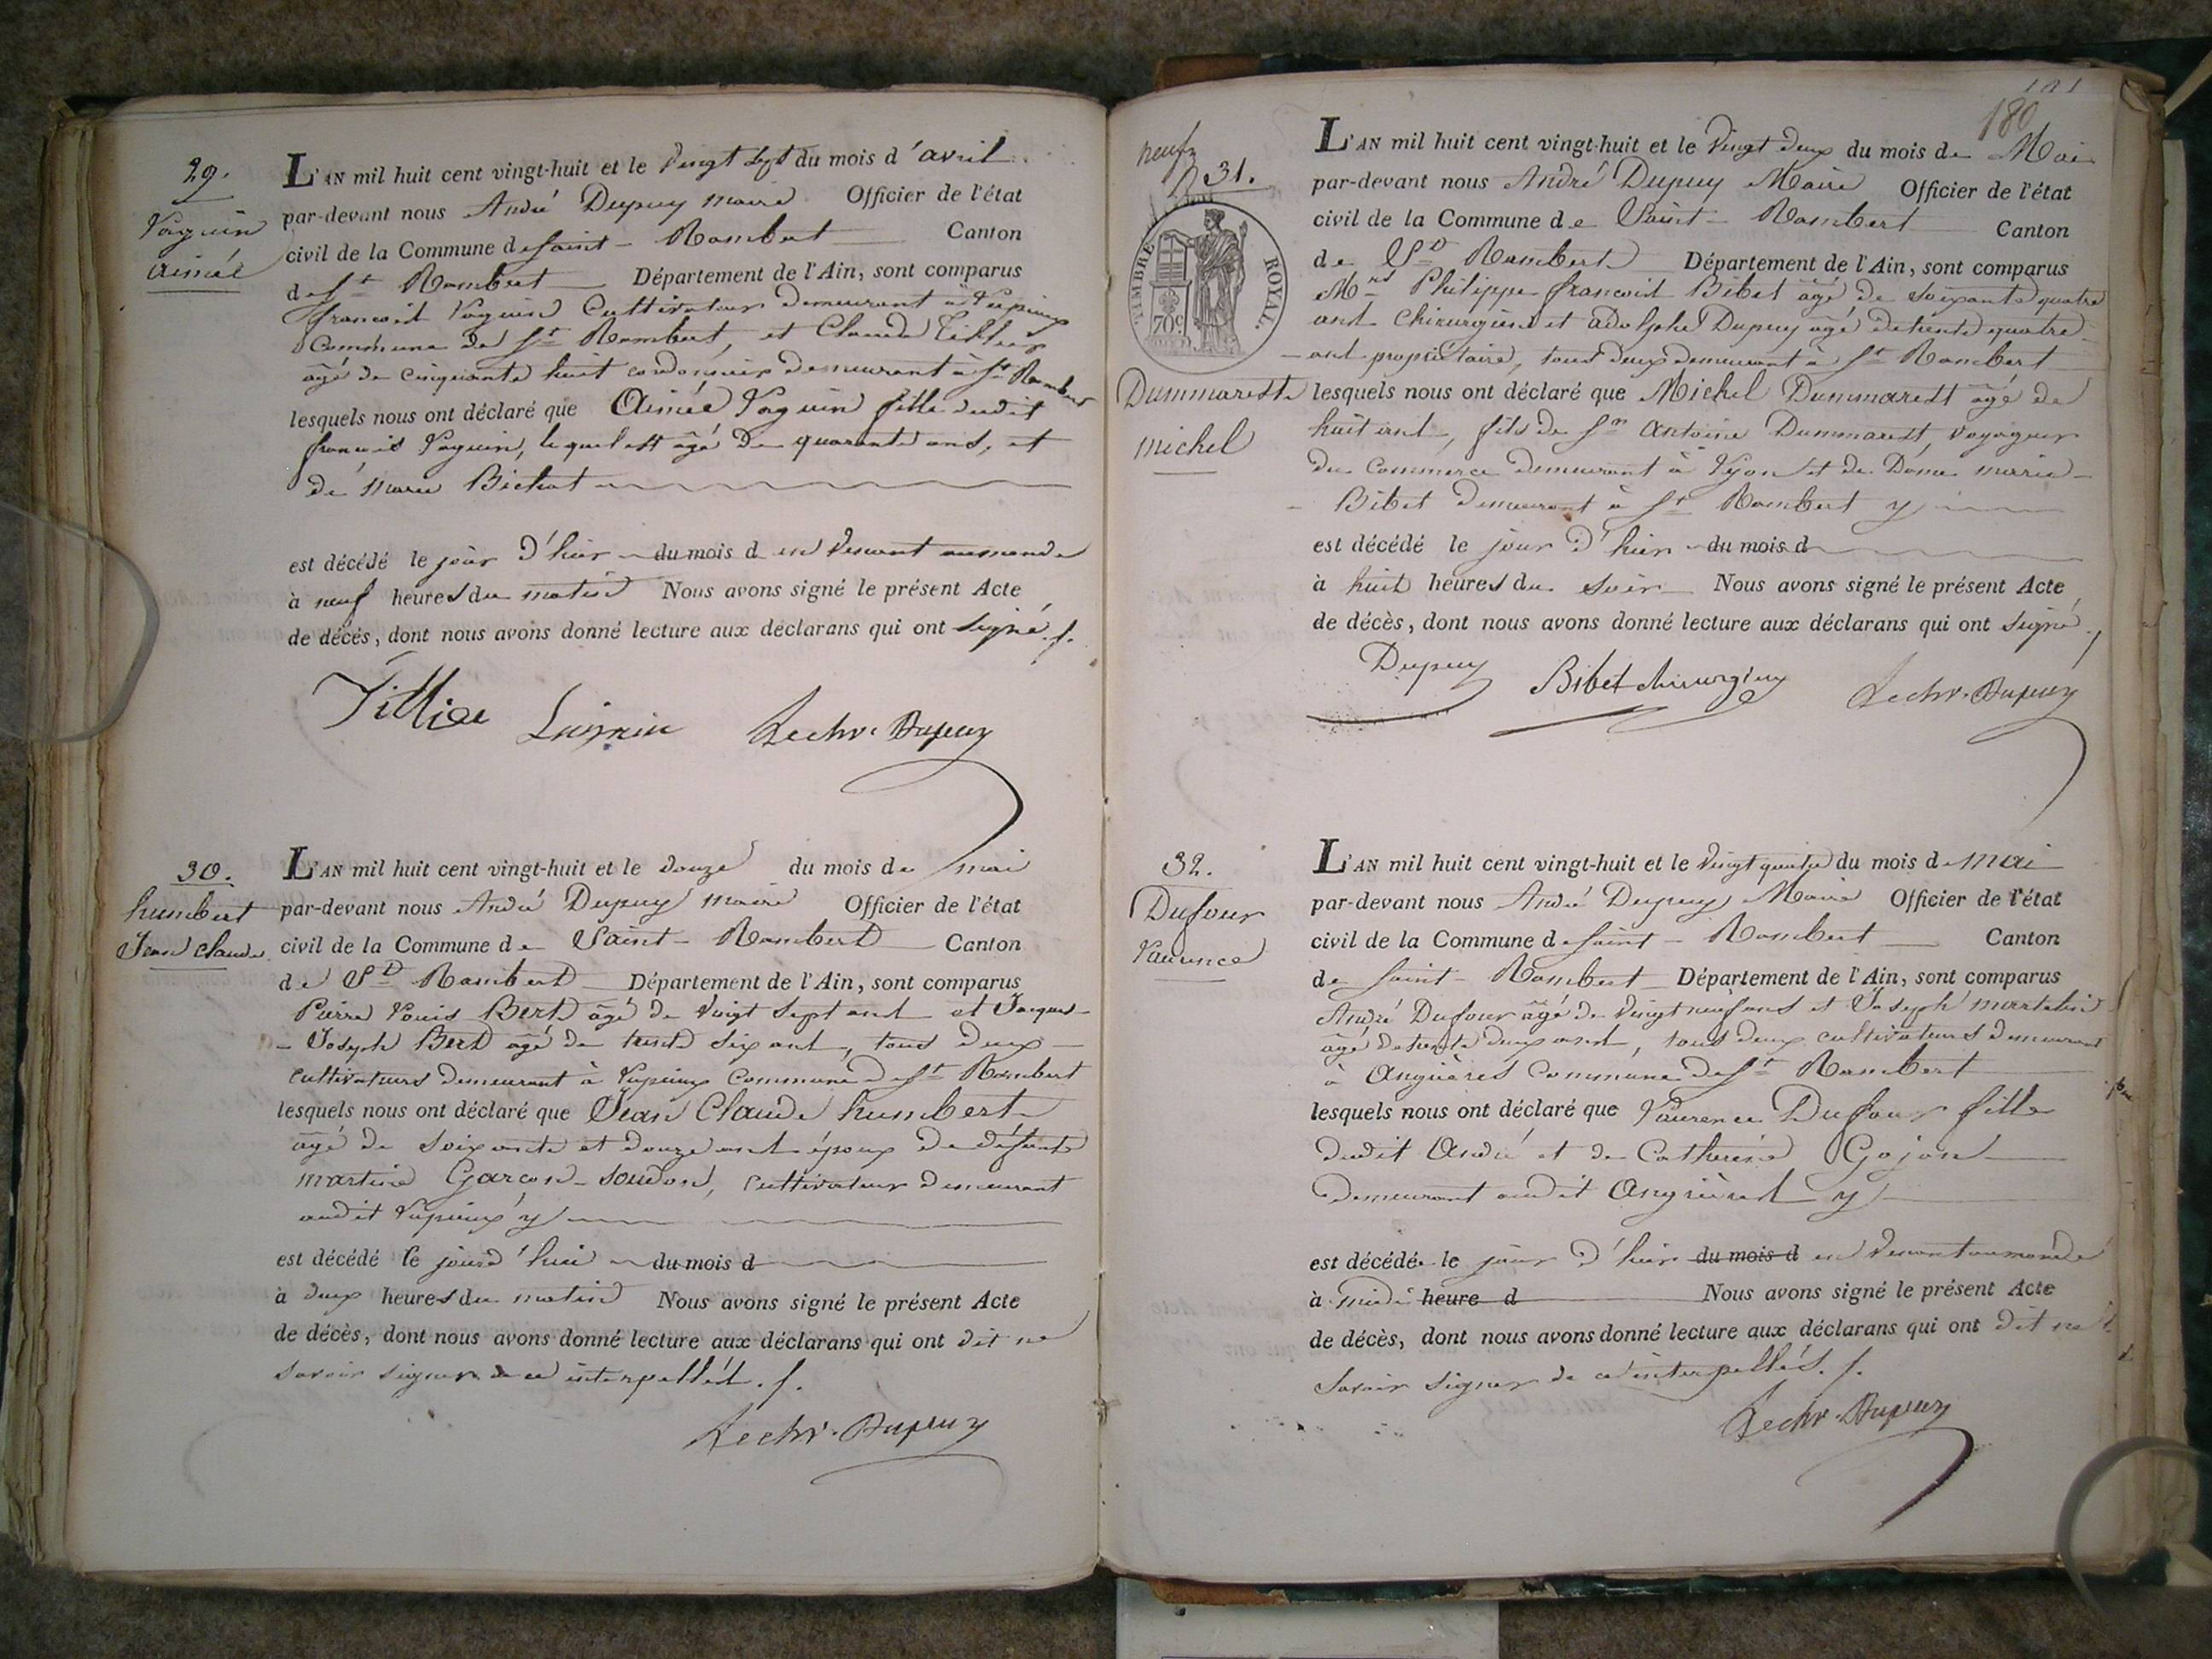 29.
Laguin
aimée
L'AN mil huit cent vingt-huit et le vingt sept du mois d'avril
par-devant nous André Dupuy maire Officier de l'état
civil de la Commune de saint-Rambert Canton
de St Rambert Département de l'Ain, sont comparus
francois Laguin Cultivateur demeurant à Lupieux
Commune de St Rambert, et Claude
âgé de cinquante huit cordonnier demeurant à St Rambert
lesquels nous ont déclaré que Aimée Laguin fille dudit
francois Laguin, lequel est âgé de quarante ans, et
de marie Bichat
est décédé le jour d'hier du mois d en venant aumonde
à neuf heures du matin Nous avons signé le présent Acte
de décès, dont nous avons donné lecture aux déclarans qui ont signé./.
Dupuy
30.
humbert
Jean claude
L'AN mil huit cent vingt-huit et le douze du mois de mai
par-devant nous André Dupuy maire Officier de l'état
civil de la Commune de Saint-Rambert Canton
de St Rambert Département de l'Ain, sont comparus
Pierre Louis Bert âgé de vingt sept ans et Jacques
Joseph Bert âgé de trente six ans, tous deux
cultivateurs demeurant à Lupieux Commune de St Rambert
lesquels nous ont déclaré que Jean Claude humbert
âgé de soixante et douze ans époux de défunte
martine Garçon-soudon, cultivateur demeurant
audit Lupieux y
est décédé le jour d'hui du mois d
à deux heures du matin Nous avons signé le présent Acte
de décès, dont nous avons donné lecture aux déclarans qui ont dit ne
savoir signer de ce interpellés./.
Dupuy
180
neuf
31.
TIMBRE ROYAL
70c
Dummareste
michel
L'AN mil huit cent vingt-huit et le vingt deux du mois de Mai
par-devant nous André Dupuy Maire Officier de l'état
civil de la Commune de Saint-Rambert Canton
de St Rambert Département de l'Ain, sont comparus
Mrs Philippe francois Bibet âgé de soixante quatre
ans chirurgien et adolphe Dupuy âgé de trente quatre
ans propriétaire, tous deux demeurant à St Rambert
lesquels nous ont déclaré que Michel Dummarest âgé de
huit ans, fils de Sr antoine Dummarest, voyageur
du commerce demeurant à Lyon et de Dame marie
Bibet demeurant à St Rambert y
est décédé le jour d'hier du mois d
à huit heures du soir Nous avons signé le présent Acte
de décès, dont nous avons donné lecture aux déclarans qui ont signé./
Dupuy Bibet chirurgien Dupuy
32.
Dufour
Laurence
L'AN mil huit cent vingt-huit et le vingt quatre du mois de mai
par-devant nous André Dupuy Maire Officier de l'état
civil de la Commune de saint-Rambert Canton
de saint-Rambert Département de l'Ain, sont comparus
André Dufour âgé de vingt neuf ans et Joseph martelin
âgé de trente deux ans, tous deux cultivateurs demeurant
à Angrières Commune de St Rambert
lesquels nous ont déclaré que Laurence Dufour fille
dudit André et de Catherine Gojon
demeurant audit Angrières y
est décédée le jour d'hier du mois d en venant aumonde
à midi heure d Nous avons signé le présent Acte
de décès, dont nous avons donné lecture aux déclarans qui ont dit ne
savoir signer de ce interpellés./.
Dupuy